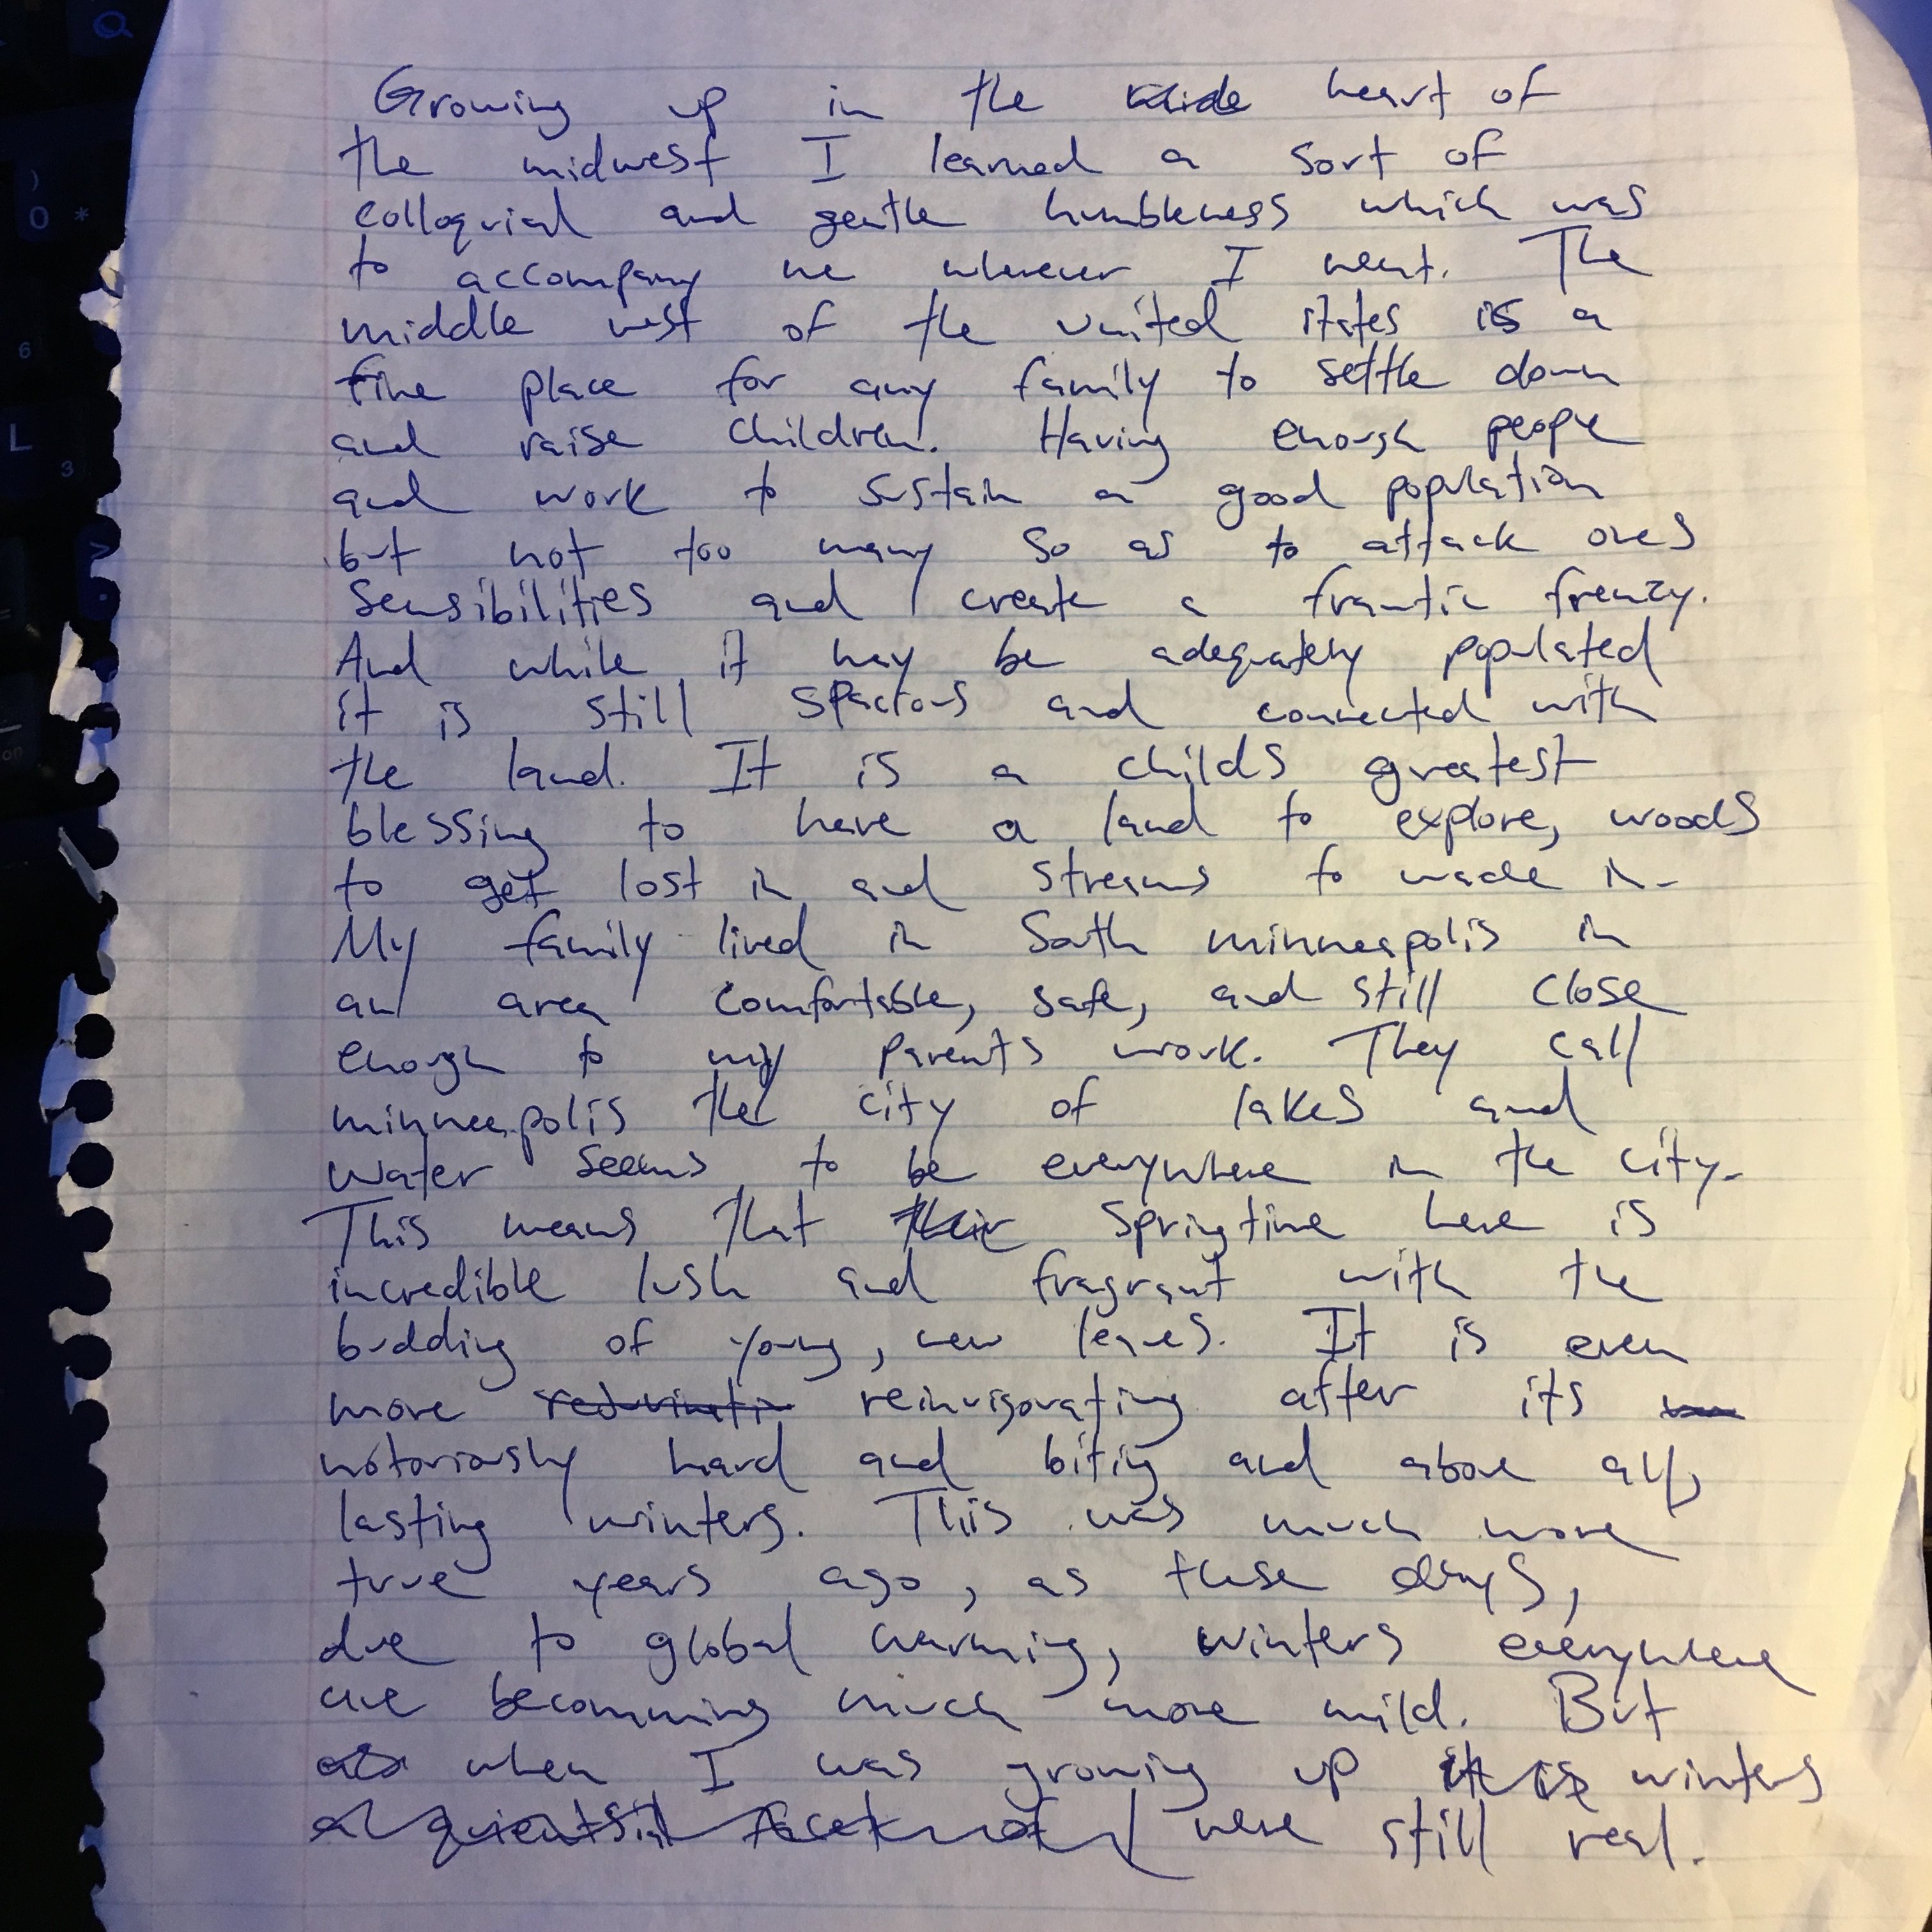 Growing up in the heart of
the midwest I learned a sort of
colloquial and gentle humbleness which was
to accompany me wherever I went. The
middle west of the united states is a
fine place for any family to settle down
and raise children. Having enough people
and work to sustain a good population
but not too many so as to attack ones
sensibilities and create a frantic frenzy.
And while it may be adequately populated
it is still spacious and connected with
the land. It is a childs greatest
blessing to have a land to explore, woods
to get lost in and streams to wade in.
My family lived in South minneapolis in
an area comfortable, safe, and still close
enough to my parents work. They call
minneapolis the city of lakes and
water seems to be everywhere in the city.
This means that their springtime here is
incredible lush and fragrant with the
budding of young, new leaves. It is even
more reinvigorating after its
notoriously hard and biting and above all,
lasting winters. This was much more
true years ago, as these days,
due to global warming, winters everywhere
are becomming much more mild. But
when I was growing up it is winters
were still real.